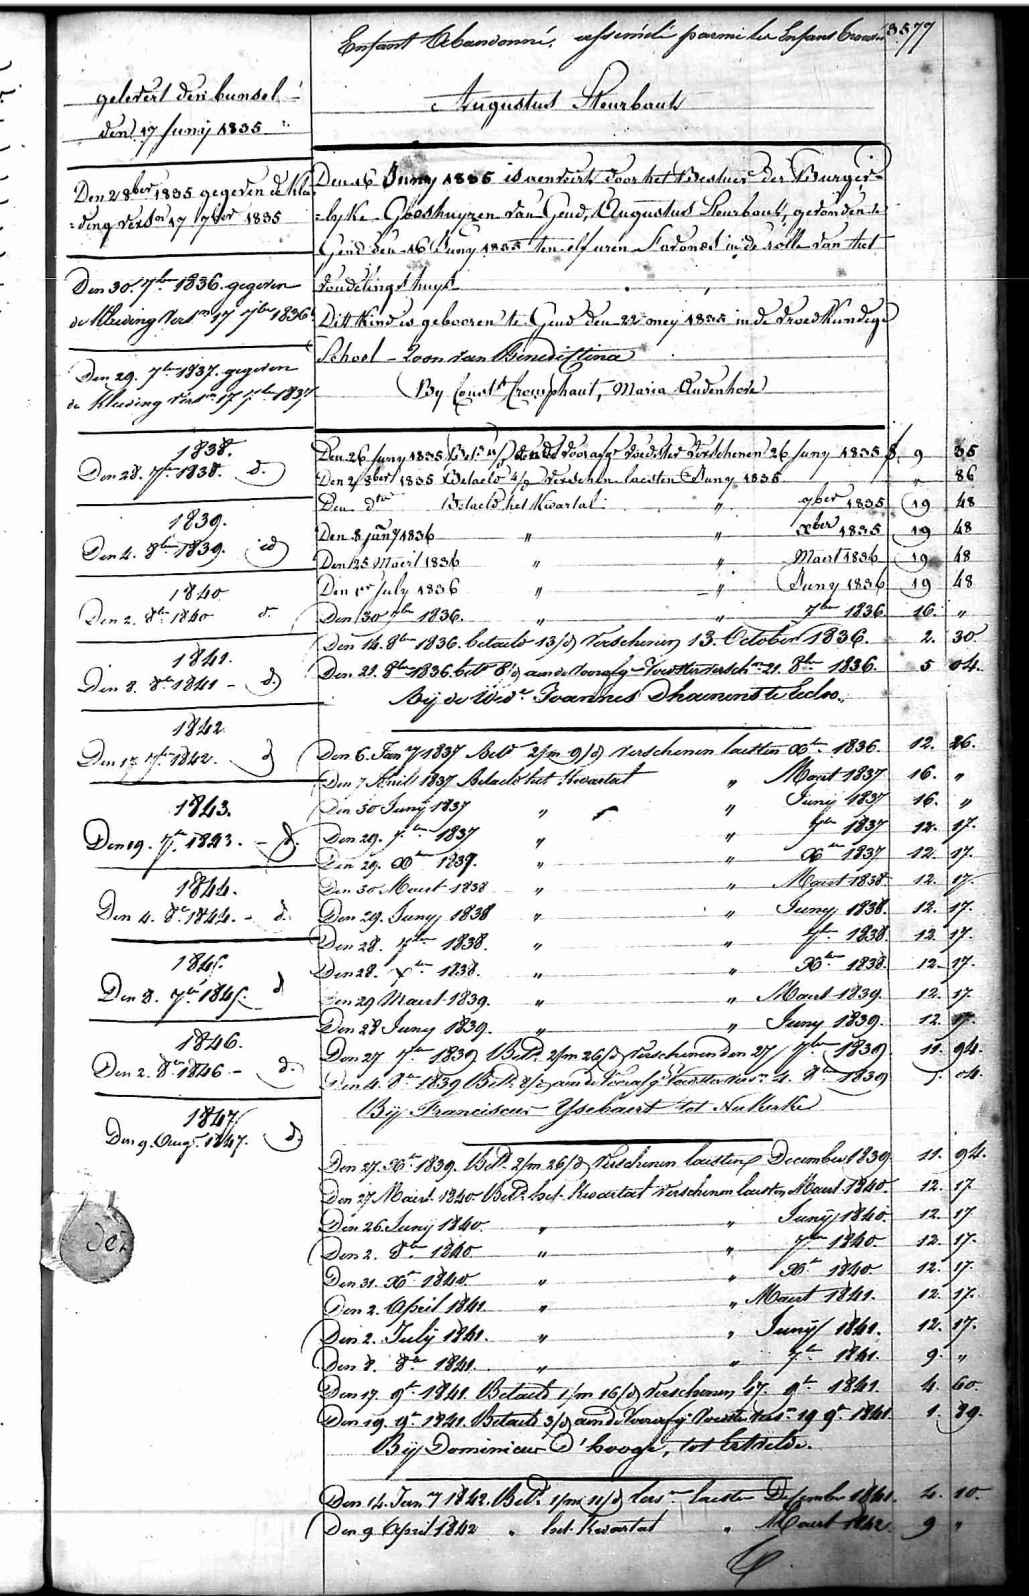 Enfant Abandonné, assimilé parmi les Enfans trouvés
3577
gelevert den bunsel
den 17 Junij 1835
Augustus Steurbaut
Den 2 8ber 1835 gegeven de kla
=ding versn 17 7ber 1835
Den 30. 7bre 1836. gegeven
de kleeding versn 17 7bre 1836
Den 29. 7bre 1837. gegeven
de kleeding versn 17 7bre 1837
1838.
Den 28. 7bre 1838. d.
1839.
Den 4. 8bre 1839. id
1840
Den 2. 8bre 1840 d.
1841.
Den 8. 8bre 1841 - d.
1842
Den 17. 7bre 1842. d
1843.
Den 19. 7bre 1843. - d.
1844.
Den 4. 8bre 1844. - d.
1845.
Den 8. 7bre 1845. d
1846.
Den 2. 8bre 1846 - d.
1847.
Den 9. Augt. 1847. d
Den 16 Juny 1835 is aenveirt door het Bestuer der Burger=
=lyke Godshuyzen van Gend, Augustus Steurbaut, gevonden te
Gend den 16 Juny 1835 ten elf uren s'avonds in de rolle van het
vondelingshuys
Dit kind is gebooren te Gend den 22 mey 1835 in de vroedkundige
School - Zoon van Benedictina
By Const. Cromphaut, Maria Audenhove
Den 26 Juny 1835 Bet. aen de voorafge voedster verschenen 26 Juny 1835 f. 9 35
Den 2 8ber 1835 Betaeld 4/d verschen laesten Juny 1835 " 86
Den dto Betaeld het Kwartal " 7ber 1835 19 48
Den 8 January 1836 " " xber 1835 19 48
Den 25 Maert 1836 " " Maert 1836 19 48
Den 1er July 1836 " " Juny 1836 19 48
Den 30 7bre 1836. " " 7bre 1836 16. "
Den 14. 8bre 1836. betaeld 13/d verschenen 13. October 1836. 2. 30
Den 21. 8bre 1836. betd 8/d aen de voorafge voedster versch. 21. 8bre 1836. 5 04.
Bij de Wede Joannes Dhaenens te Eecloo.
Den 6. Jany 1837 Betd 2/m 9/d verschenen laesten Xbre 1836. 12. 26.
Den 7 April 1837 Betaeld het Kwartal " Maert 1837 16. "
Den 30 Junij 1837 " " Junij 1837 16. "
Den 29. 7bre 1837 " " 7bre 1837 12. 17.
Den 29. Xbre 1837. " " Xbre 1837 12. 17.
Den 30 Maert 1838 " " Maert 1838 12. 17.
Den 29. Juny 1838 " " Juny 1838. 12. 17.
Den 28. 7bre 1838. " " 7bre 1838. 12. 17.
Den 28. Xbre 1838. " " Xbre 1838. 12. 17.
Den 29 Maert 1839. " " Maert 1839. 12. 17.
Den 28 Juny 1839. " " Juny 1839. 12. 17.
Den 27 7bre 1839 Betd. 2/m 26/d verschenen den 27 7bre 1839 11. 94.
Den 4. 8bre 1839 Betd. 8/d aen de voorafge voedster vers. 4. 8bre 1839 5. 04.
Bij Franciscus Ysebaert tot Nukerke
Den 27. Xbre 1839. Betd. 2/m 26/d verschenen laesten December 1839 11. 94.
Den 27 Maert 1840 Betd. het Kwartal verschenen laesten Maert 1840. 12. 17
Den 26 Junij 1840. " " Junij 1840. 12. 17
Den 2. 8bre 1840 " " 7bre 1840. 12. 17.
Den 31. Xbre 1840. " " Xbre 1840 12. 17.
Den 2. April 1841. " " Maert 1841. 12. 17.
Den 2. Julij 1841. " " Junij 1841. 12. 17.
Den 8. 8bre 1841. " " 7bre 1841. 9. "
Den 17. 9bre 1841. Betaeld 1/m 16/d verschenen 17. 9bre 1841. 4. 60.
Den 19. 9bre 1841. Betaeld 3/d aen de voorafge voedster vers. 19 9bre 1841 1. 89.
Bij Dominicus D'hooge, tot Ertvelde.
Den 14. Jany 1842. Betd. 1/m 11/d vers. laesten December 1841. 4. 10.
Den 9 April 1842 " het Kwartal " Maert 1842 9 "